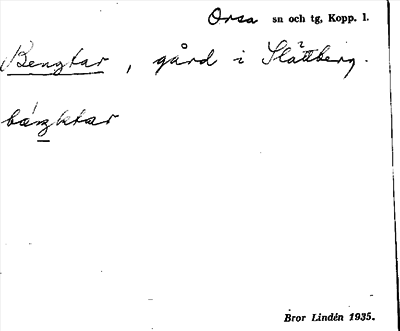 Orsa sn och tg, Kopp. 1.
Bengtar, gård i Slättberg.
Bror Lindén 1935.